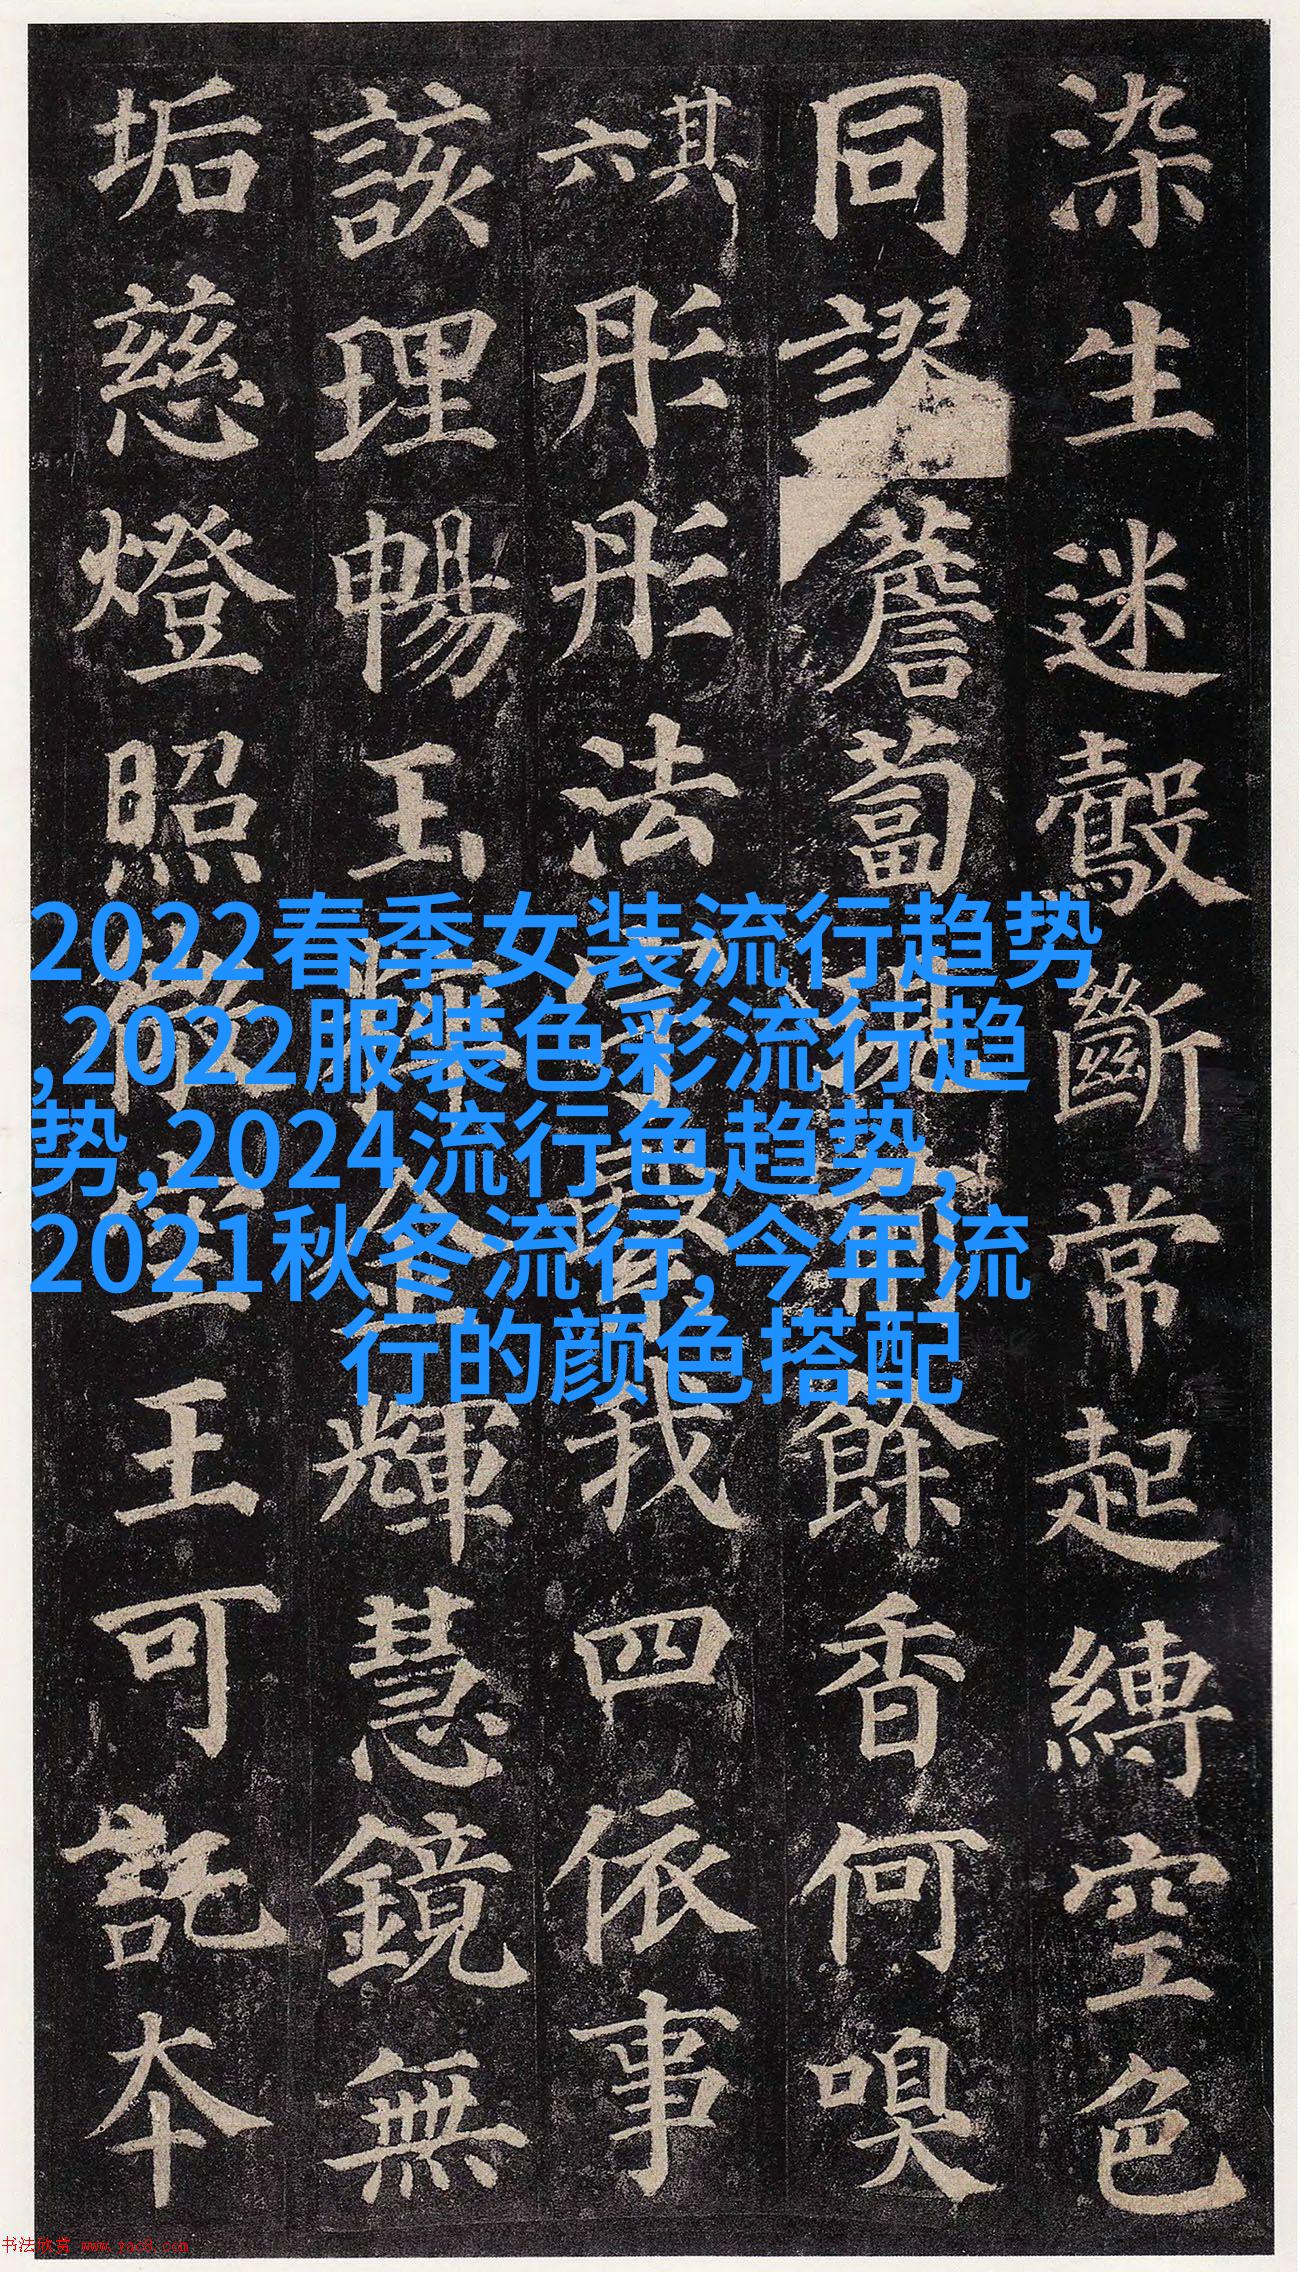 染生迷鷇斷常起縛空色
同謬薝蔔現前餘香何嗅
其六彤彤法宇繄我四依事
該理暢玉粹金輝慧鏡無
垢慈燈照微空王可託本
2022春季女装流行趋势
,2022服装色彩流行趋
势,2024流行色趋势,
2021秋冬流行,今年流
行的颜色搭配
书法欣赏 www.yac8.com